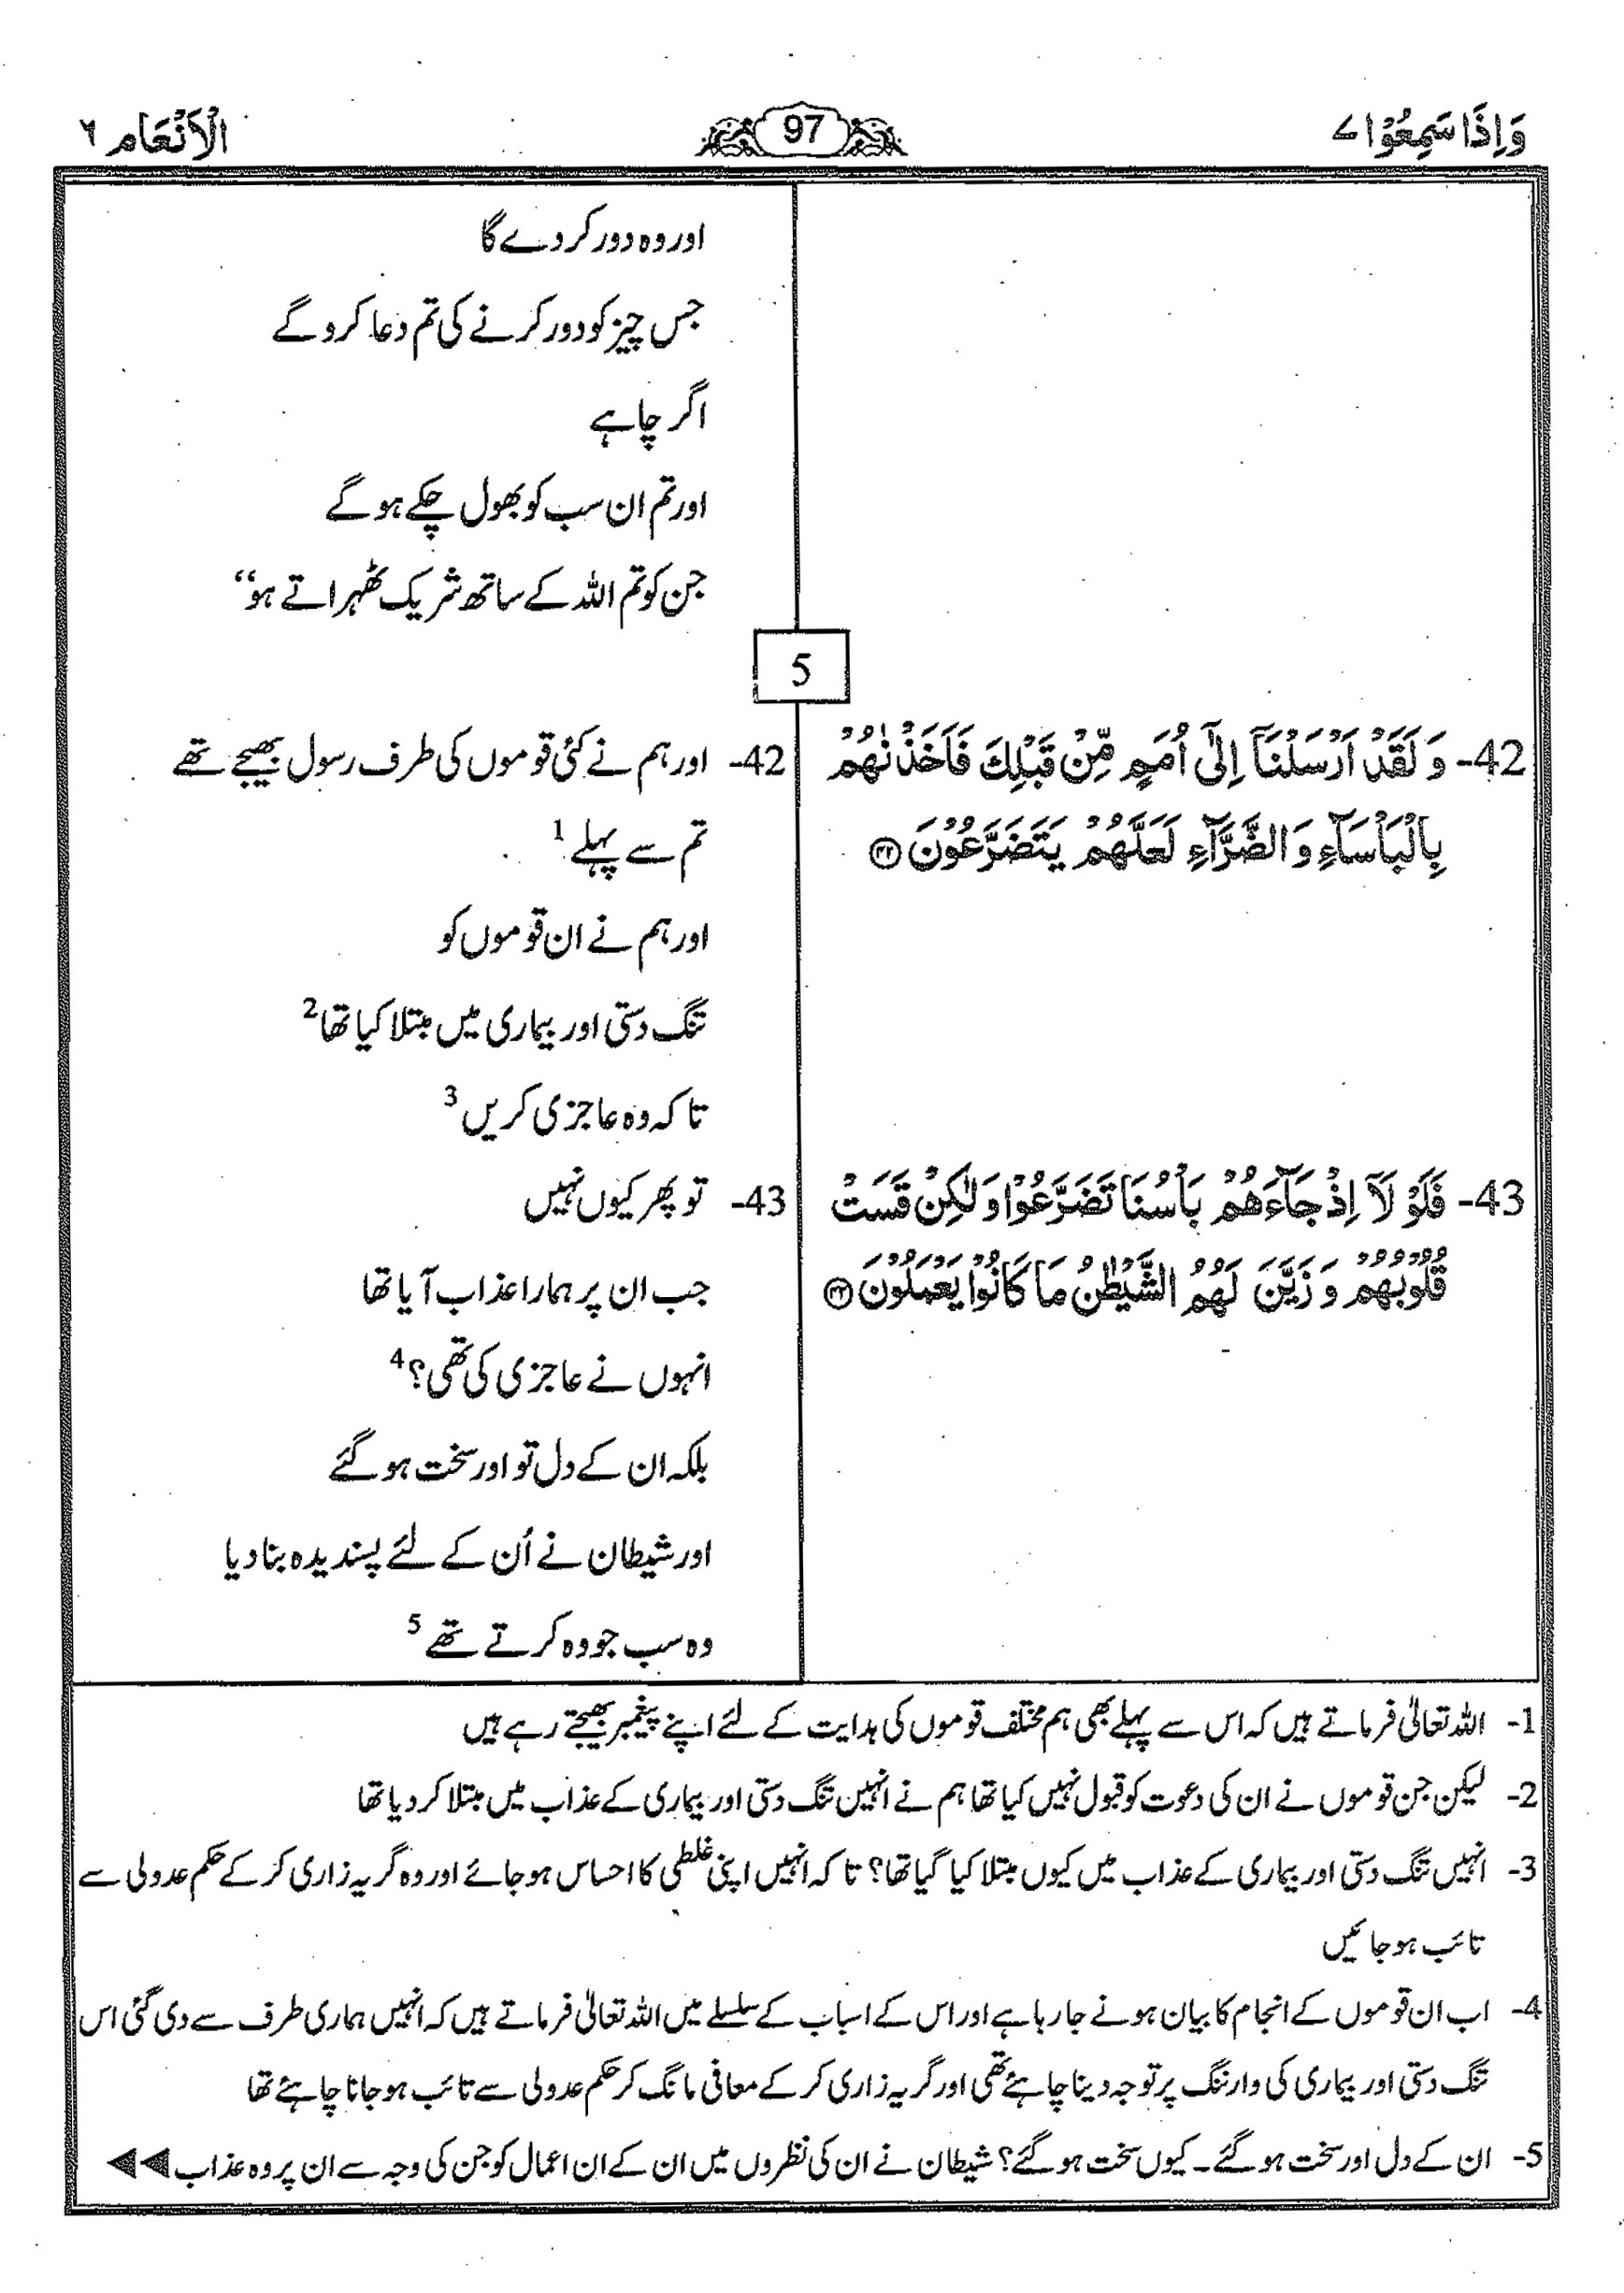 وَاِذَا سَمِعُوْا ۷
97
الْاَنْعَام ۶
اور وہ دور کر دے گا
جس چیز کو دور کرنے کی تم دعا کرو گے
اگر چاہے
اور تم ان سب کو بھول چکے ہو گے
جن کو تم اللہ کے ساتھ شریک ٹھہراتے ہو‘‘
5
42- وَ لَقَدْ اَرْسَلْنَاۤ اِلٰۤى اُمَمٍ مِّنْ قَبْلِكَ فَاَخَذْنٰهُمْ
بِالْبَاْسَآءِ وَ الضَّرَّآءِ لَعَلَّهُمْ يَتَضَرَّعُوْنَ ۝۴۲
42- اور ہم نے کئی قوموں کی طرف رسول بھیجے تھے
تم سے پہلے 1
اور ہم نے ان قوموں کو
تنگ دستی اور بیماری میں مبتلا کیا تھا 2
تاکہ وہ عاجزی کریں 3
43- فَلَوْ لَاۤ اِذْ جَآءَهُمْ بَاْسُنَا تَضَرَّعُوْا وَ لٰكِنْ قَسَتْ
قُلُوْبُهُمْ وَ زَيَّنَ لَهُمُ الشَّيْطٰنُ مَا كَانُوْا يَعْمَلُوْنَ ۝۴۳
43- تو پھر کیوں نہیں
جب ان پر ہمارا عذاب آیا تھا
انہوں نے عاجزی کی تھی؟ 4
بلکہ ان کے دل تو اور سخت ہو گئے
اور شیطان نے اُن کے لئے پسندیدہ بنا دیا
وہ سب جو وہ کرتے تھے 5
1- اللہ تعالٰی فرماتے ہیں کہ اس سے پہلے بھی ہم مختلف قوموں کی ہدایت کے لئے اپنے پیغمبر بھیجتے رہے ہیں
2- لیکن جن قوموں نے ان کی دعوت کو قبول نہیں کیا تھا ہم نے انہیں تنگ دستی اور بیماری کے عذاب میں مبتلا کر دیا تھا
3- انہیں تنگ دستی اور بیماری کے عذاب میں کیوں مبتلا کیا گیا تھا؟ تاکہ انہیں اپنی غلطی کا احساس ہو جائے اور وہ گریہ زاری کر کے حکم عدولی سے
تائب ہو جائیں
4- اب ان قوموں کے انجام کا بیان ہونے جا رہا ہے اور اس کے اسباب کے سلسلے میں اللہ تعالٰی فرماتے ہیں کہ انہیں ہماری طرف سے دی گئی اس
تنگ دستی اور بیماری کی وارننگ پر توجہ دینا چاہئے تھی اور گریہ زاری کر کے معافی مانگ کر حکم عدولی سے تائب ہو جانا چاہئے تھا
5- ان کے دل اور سخت ہو گئے۔ کیوں سخت ہو گئے؟ شیطان نے ان کی نظروں میں ان کے ان اعمال کو جن کی وجہ سے ان پر وہ عذاب ◀◀